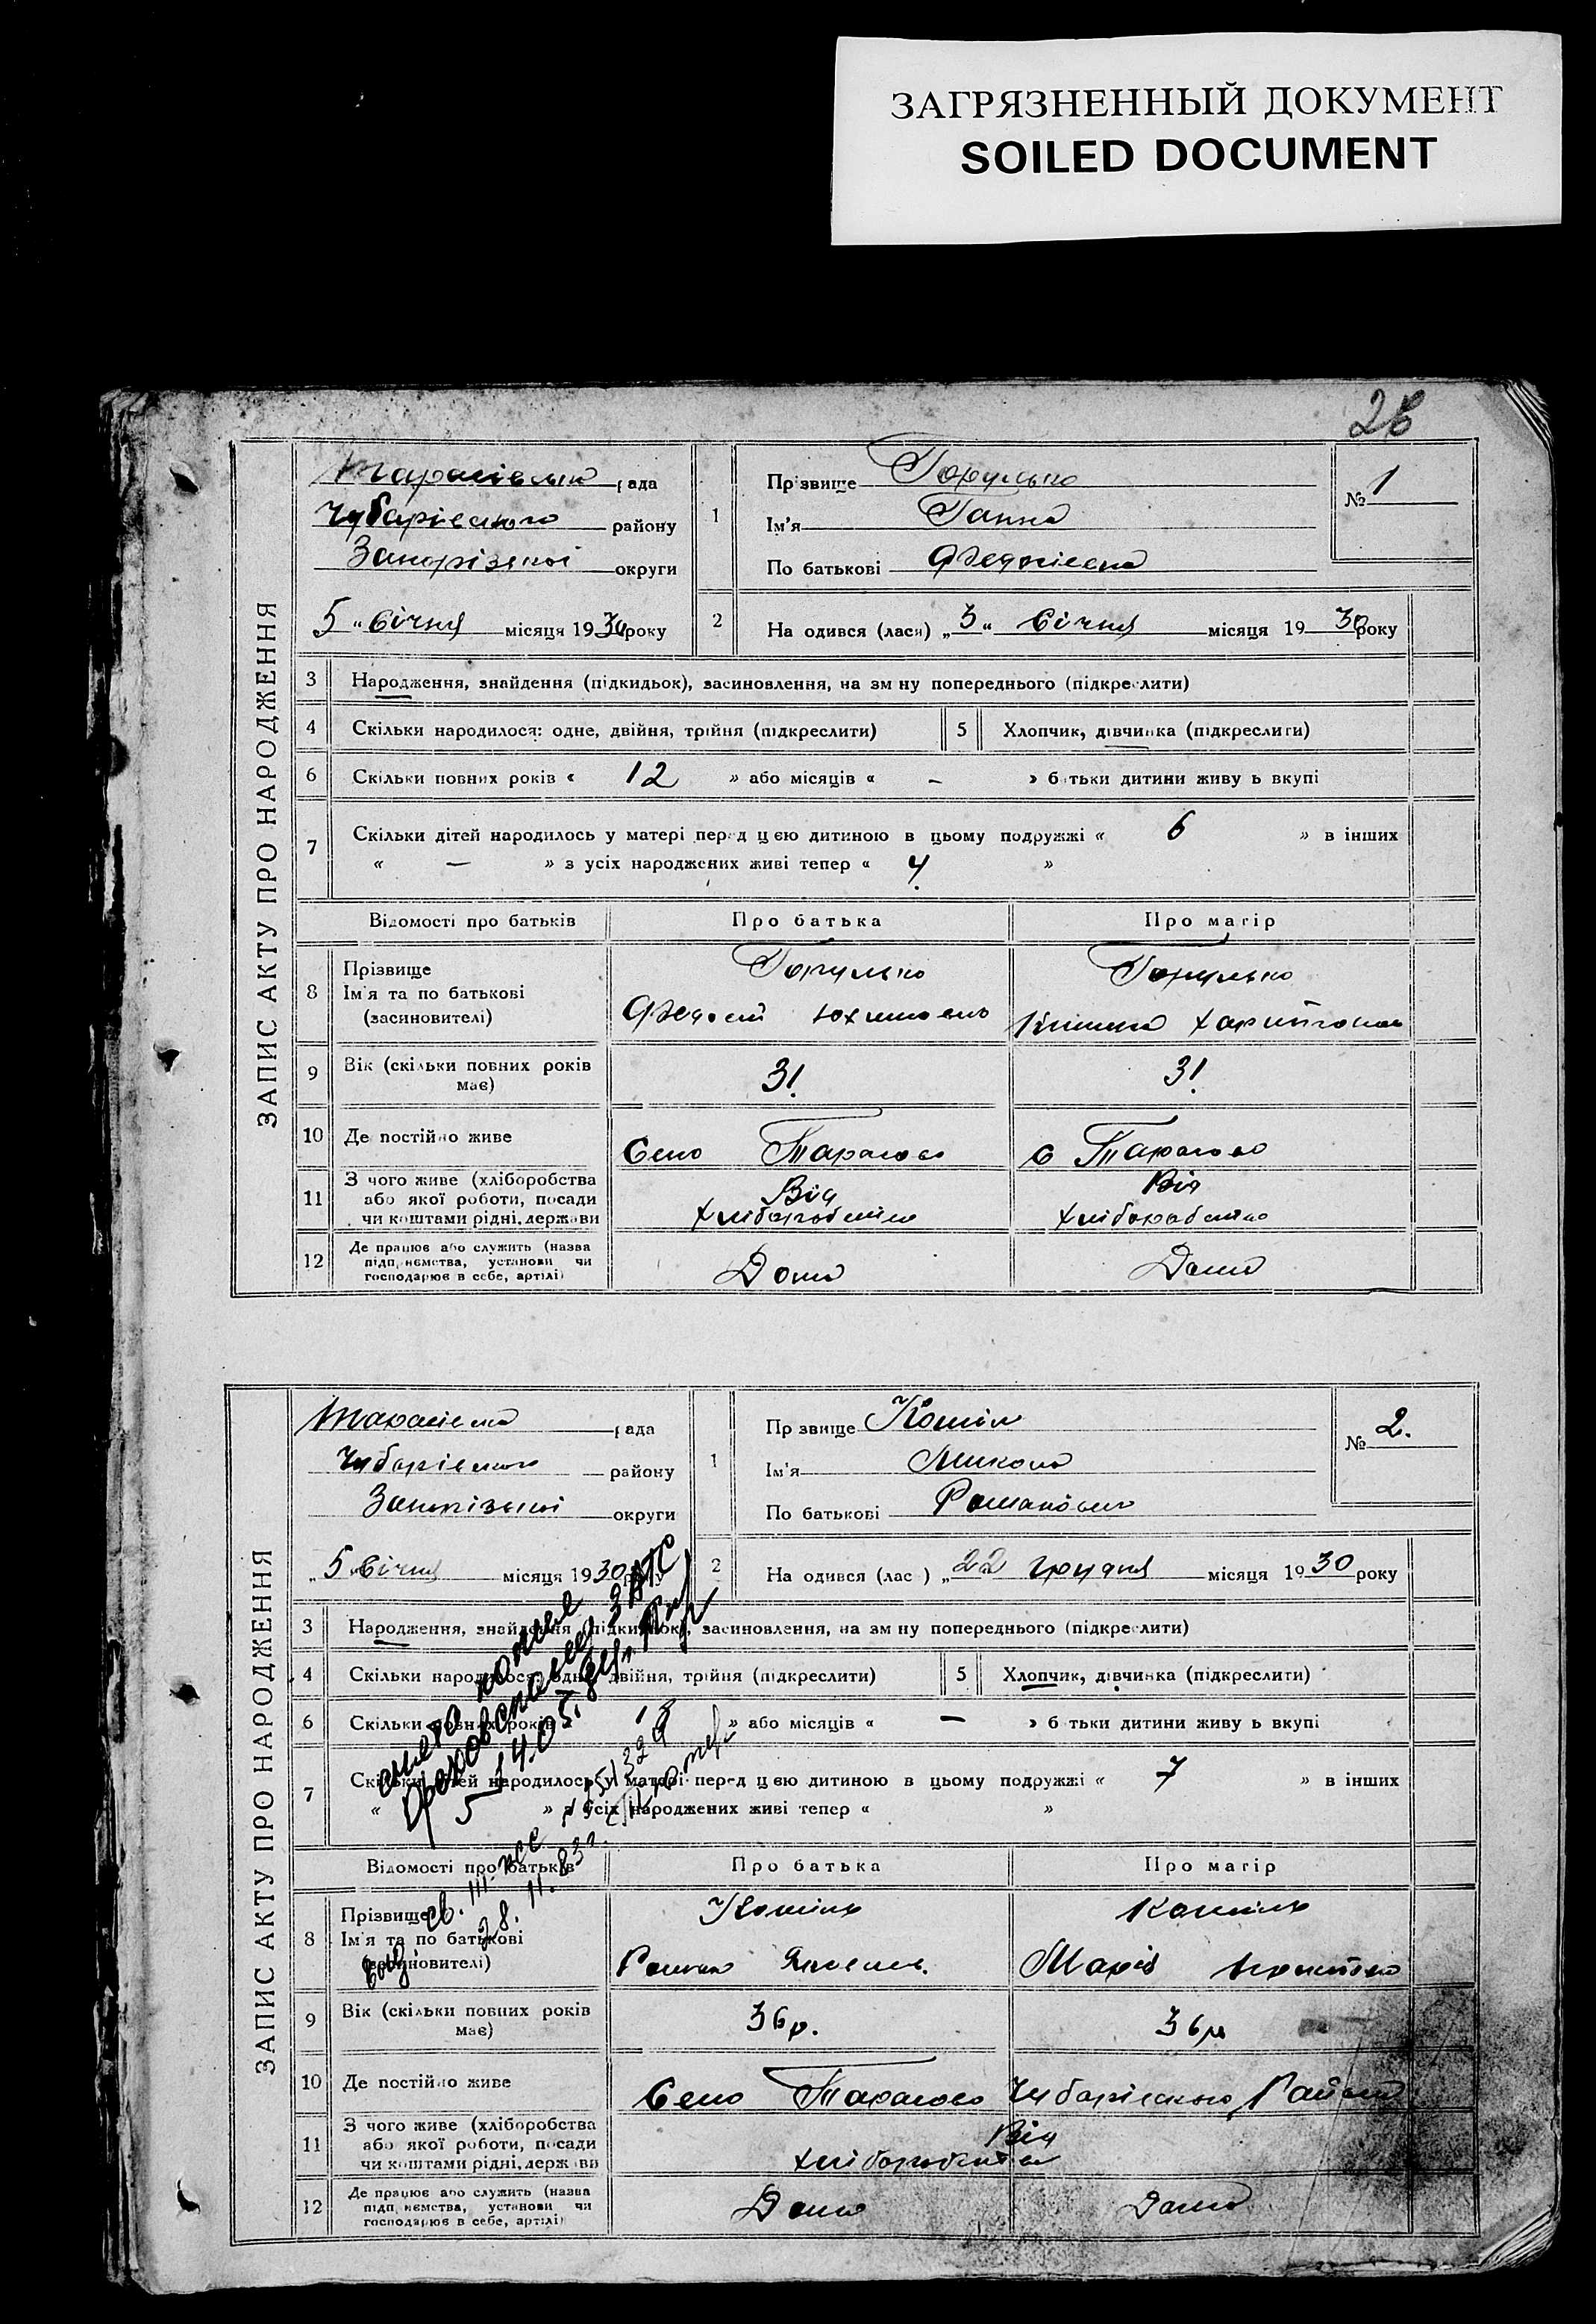 ЗАГРЯЗНЕННЫЙ ДОКУМЕНТ
SOILED DOCUMENT
ЗАПИС АКТУ ПРО НАРОДЖЕННЯ
рада
Чубарівського району
Запорізької округи
5 " Січня місяця 1930 року
1
Прізвище Горулько
Ім'я Ганна
По батькові
№ 1
2
На одився (лася) „3“ Січня місяця 1930 року
3 Народження, знайдення (підкидьок), засиновлення, на зм ну попереднього (підкреслити)
4 Скільки народилося: одне, двійня, трійня (підкреслити)
5 Хлопчик, дівчинка (підкреслити)
6 Скільки повних років « 12 » або місяців « – » б тьки дитини живу ь вкупі
7 Скільки дітей народилось у матері перед цією дитиною в цьому подружжі « 6 » в інших
« – » з усіх народжених живі тепер « 4 »
Відомості про батьків
Про батька
Про матір
8 Прізвище
Ім'я та по батькові
(засиновителі)
Горулько
Горулько
9 Вік (скільки повних років
має)
31
31
10 Де постійно живе
Село Тарасово
с Тарасово
11 З чого живе (хліборобства
або якої роботи, посади
чи коштами рідні, держави
Від
хліборобства
Від
хліборобства
12 Де працює або служить (назва
підп иємства, установи чи
господарює в себе, артілі)
Дома
Дома
ЗАПИС АКТУ ПРО НАРОДЖЕННЯ
рада
Чубарівського району
Запорізької округи
„5 " Січня місяця 1930 року
1
Пр звище
Ім'я Микола
По батькові Романович
№ 2.
2
На одився (лас ) „22 грудня місяця 1930 року
3 Народження, знайдення (підкидьок), засиновлення, на зм ну попереднього (підкреслити)
4 Скільки народилося: одне, двійня, трійня (підкреслити)
5 Хлопчик, дівчинка (підкреслити)
6 Скільки повних років « 18 » або місяців « – » б тьки дитини живу ь вкупі
7 Скільки дітей народилось у матері перед цією дитиною в цьому подружжі « 7 » в інших
« » з усіх народжених живі тепер « »
ЗАГС
28.11.83г.
Відомості про батьків
Про батька
Про матір
8 Прізвище
Ім'я та по батькові
(засиновителі)
Роман
Марія
9 Вік (скільки повних років
має)
36 р.
36 р
10 Де постійно живе
Село Тарасово Чубарівського Району
11 З чого живе (хліборобства
або якої роботи, посади
чи коштами рідні, держ ви
Від
хліборобства
12 Де працює або служить (назва
підп иємства, установи чи
господарює в себе, артілі)
Дома
Дома